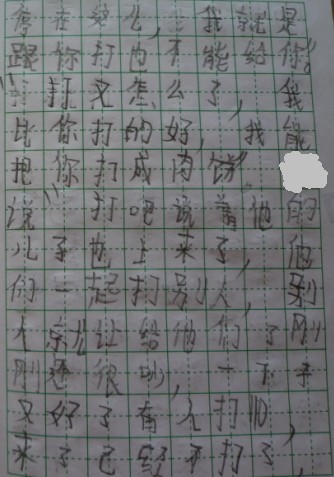 停在这么，我就是
跟你打也不能给你”
“打又怎么了，我
比你打的好，我能
把你打成肉饼。
说”打吧说着他的
儿子也上来了，他
们一起打别人，别
人就让给他们了刚
刚还很吵，一下子
又好了有人打110，
来了已经不打了，